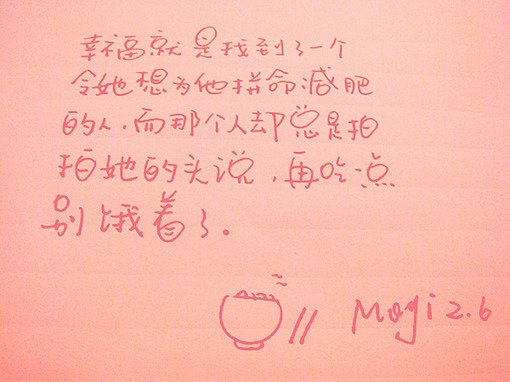 幸福就是找到了一个
令她想为他拼命减肥
的人.而那个人却总是拍
拍她的头说,再吃点
别饿着了。
Mogi 2.6